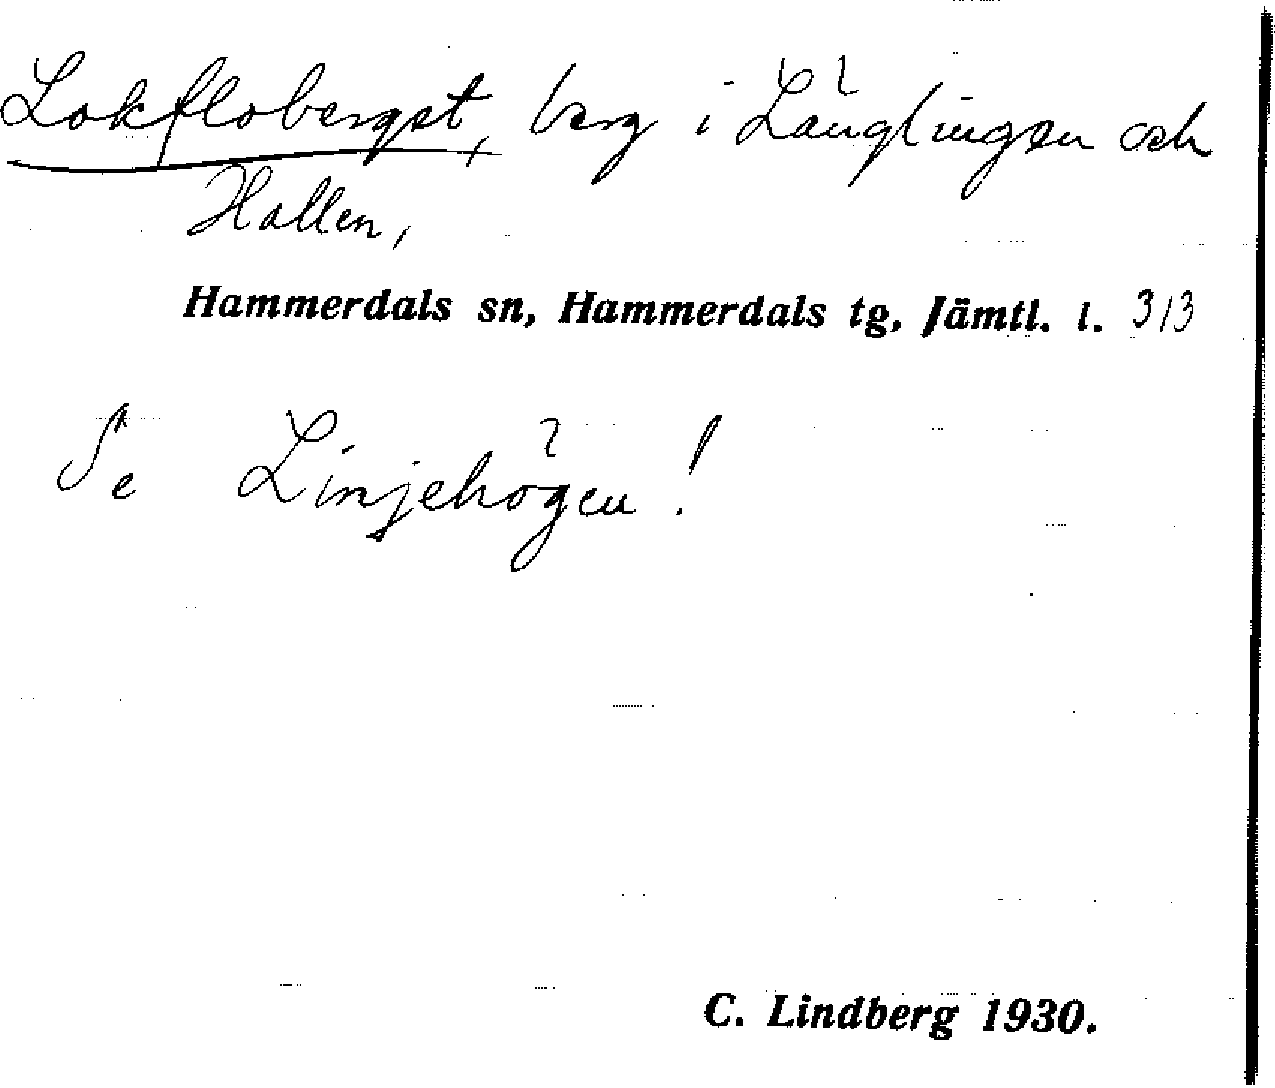 Lokflobergst, berg i Länglingen och
Hallen,
Hammerdals sn, Hammerdals tg, Jämtl. l. 313
Se Linjehögen!
C. Lindberg 1930.